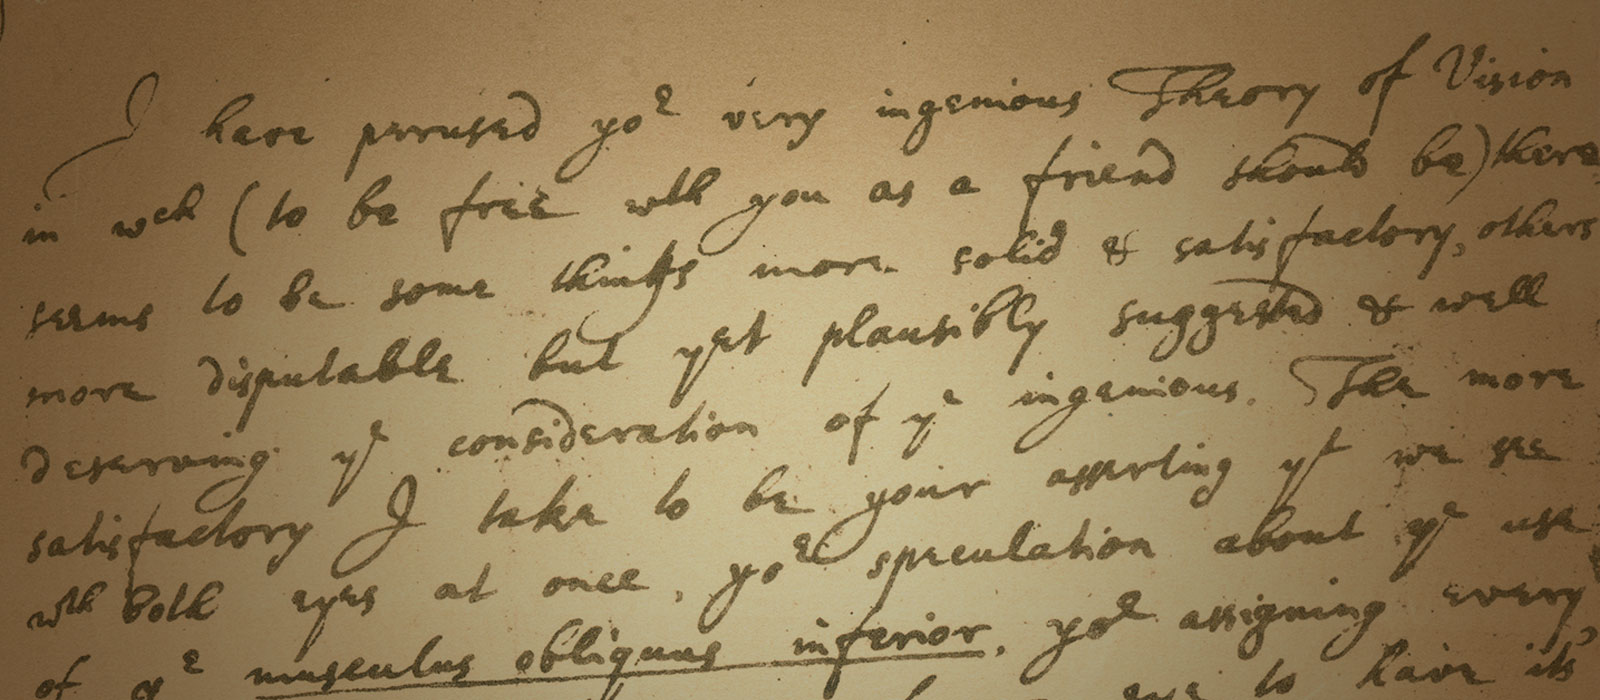 I have perused yor very ingenious Theory of Vision
in wch (to be free wth you as a friend should be) there
seems to be some things more solid & satisfactory, others
more disputable but yet plausibly suggested & well
deserving ye consideration of ye ingenious. The more
satisfactory I take to be your asserting yt we see
wth both eyes at once, yor speculation about ye use
of ye musculus obliquus inferior, yor assigning every
eye to have its